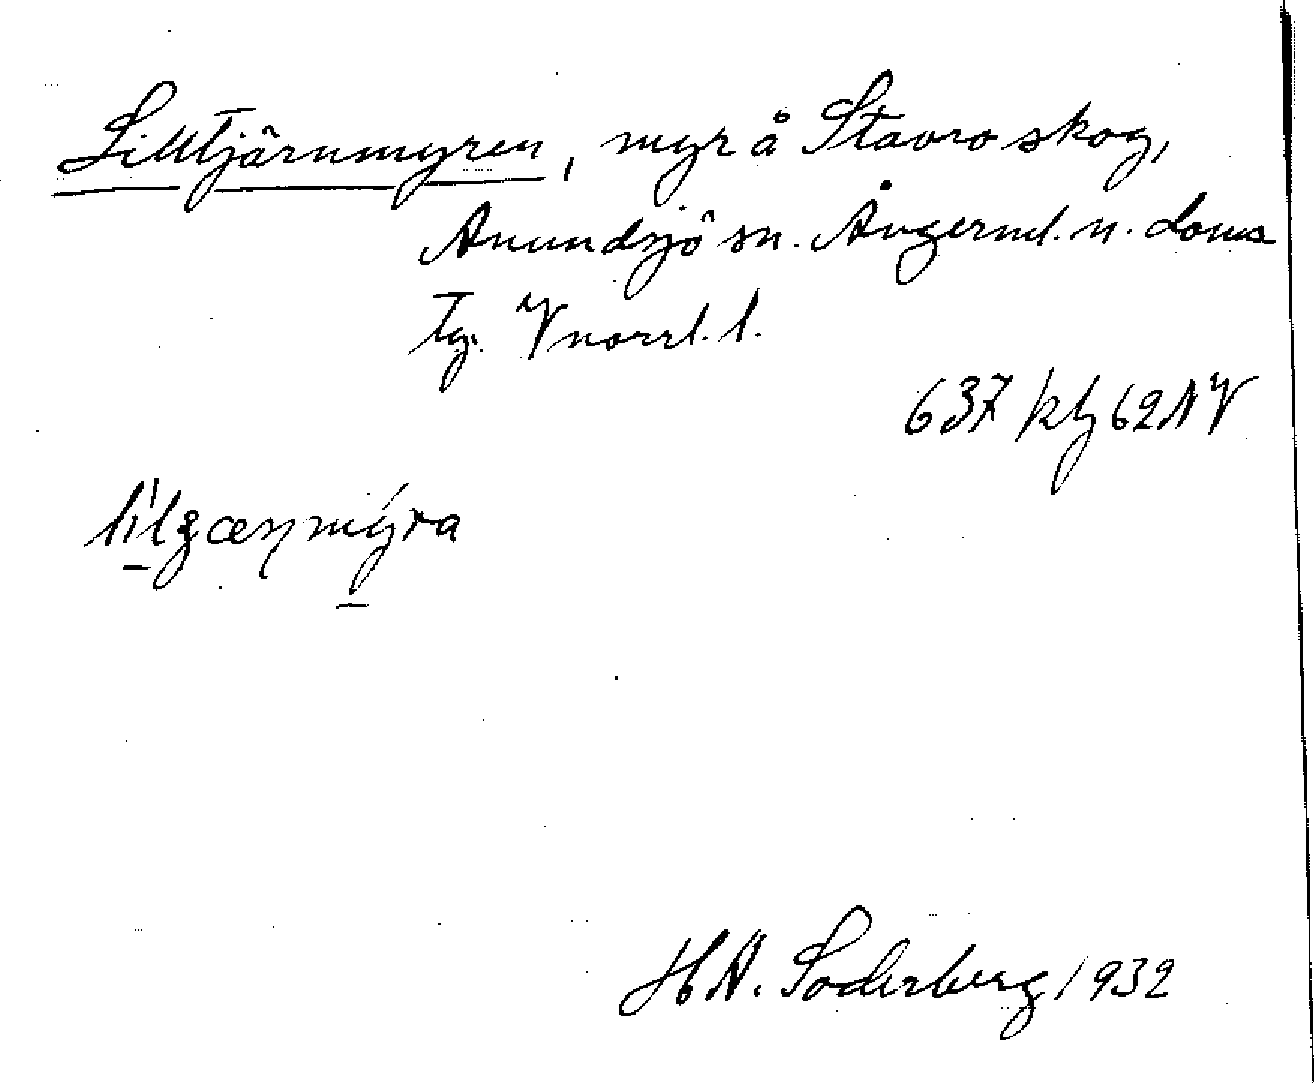 Lilltjärnmyren, myr å Stavro skog,
Anundsjö sn. Ångerml. n. doms
tg. Vnorrl. l.
637 kbl 62 NV
HA. Söderberg 1932